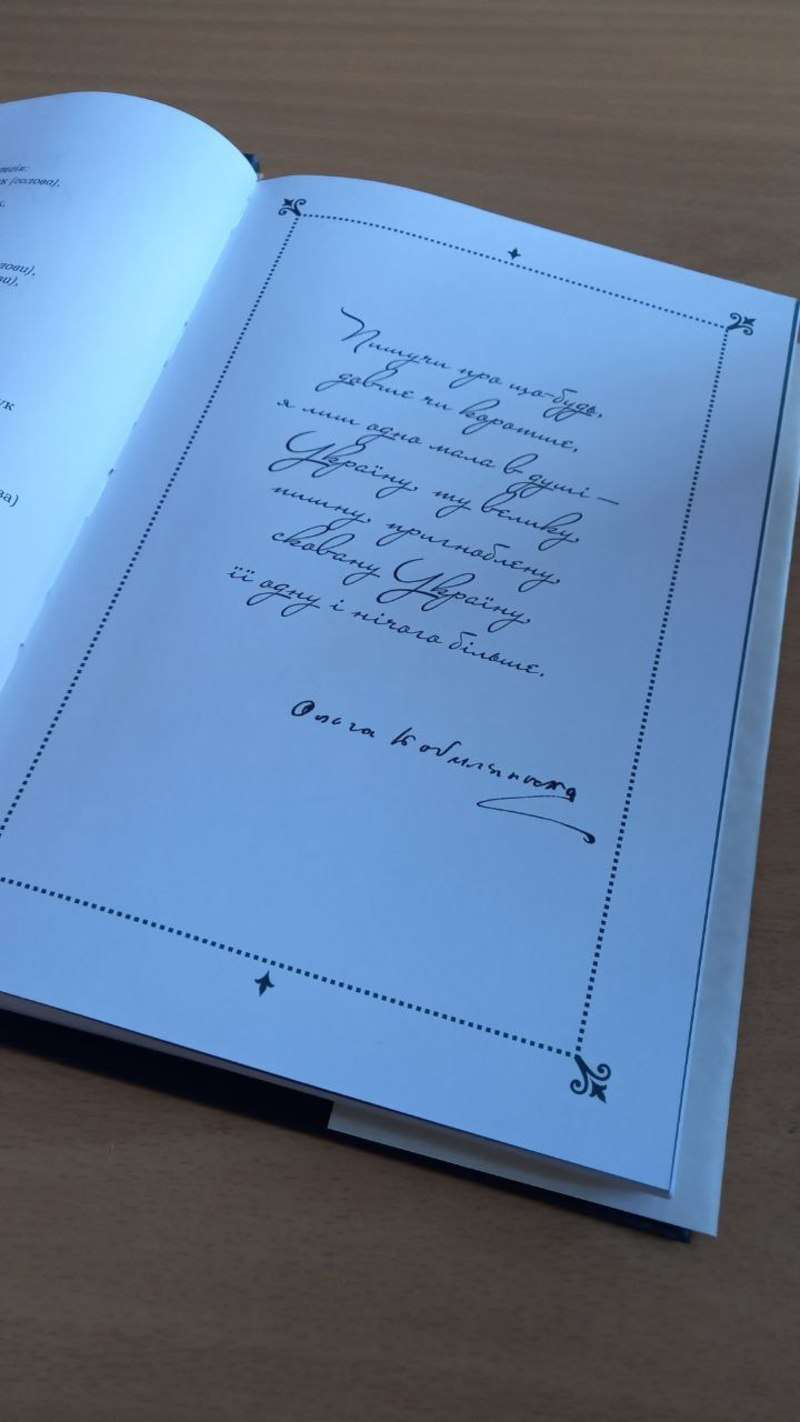 (голова),
ук
ва)
Пишучи про що-будь,
довше чи коротше,
я лиш одно мала в душі —
Україну, ту велику,
пишну, пригноблену,
сковану Україну,
її одну і нічого більше.
Ольга Кобилянська